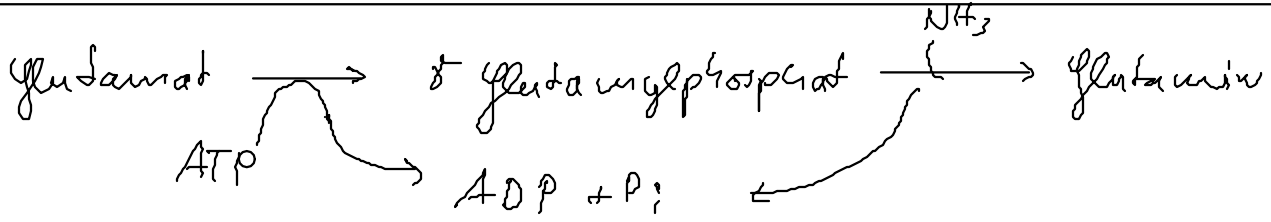 NH₃
Glutamat → γ Glutamylphosphat → Glutamin
ATP
ADP + Pi